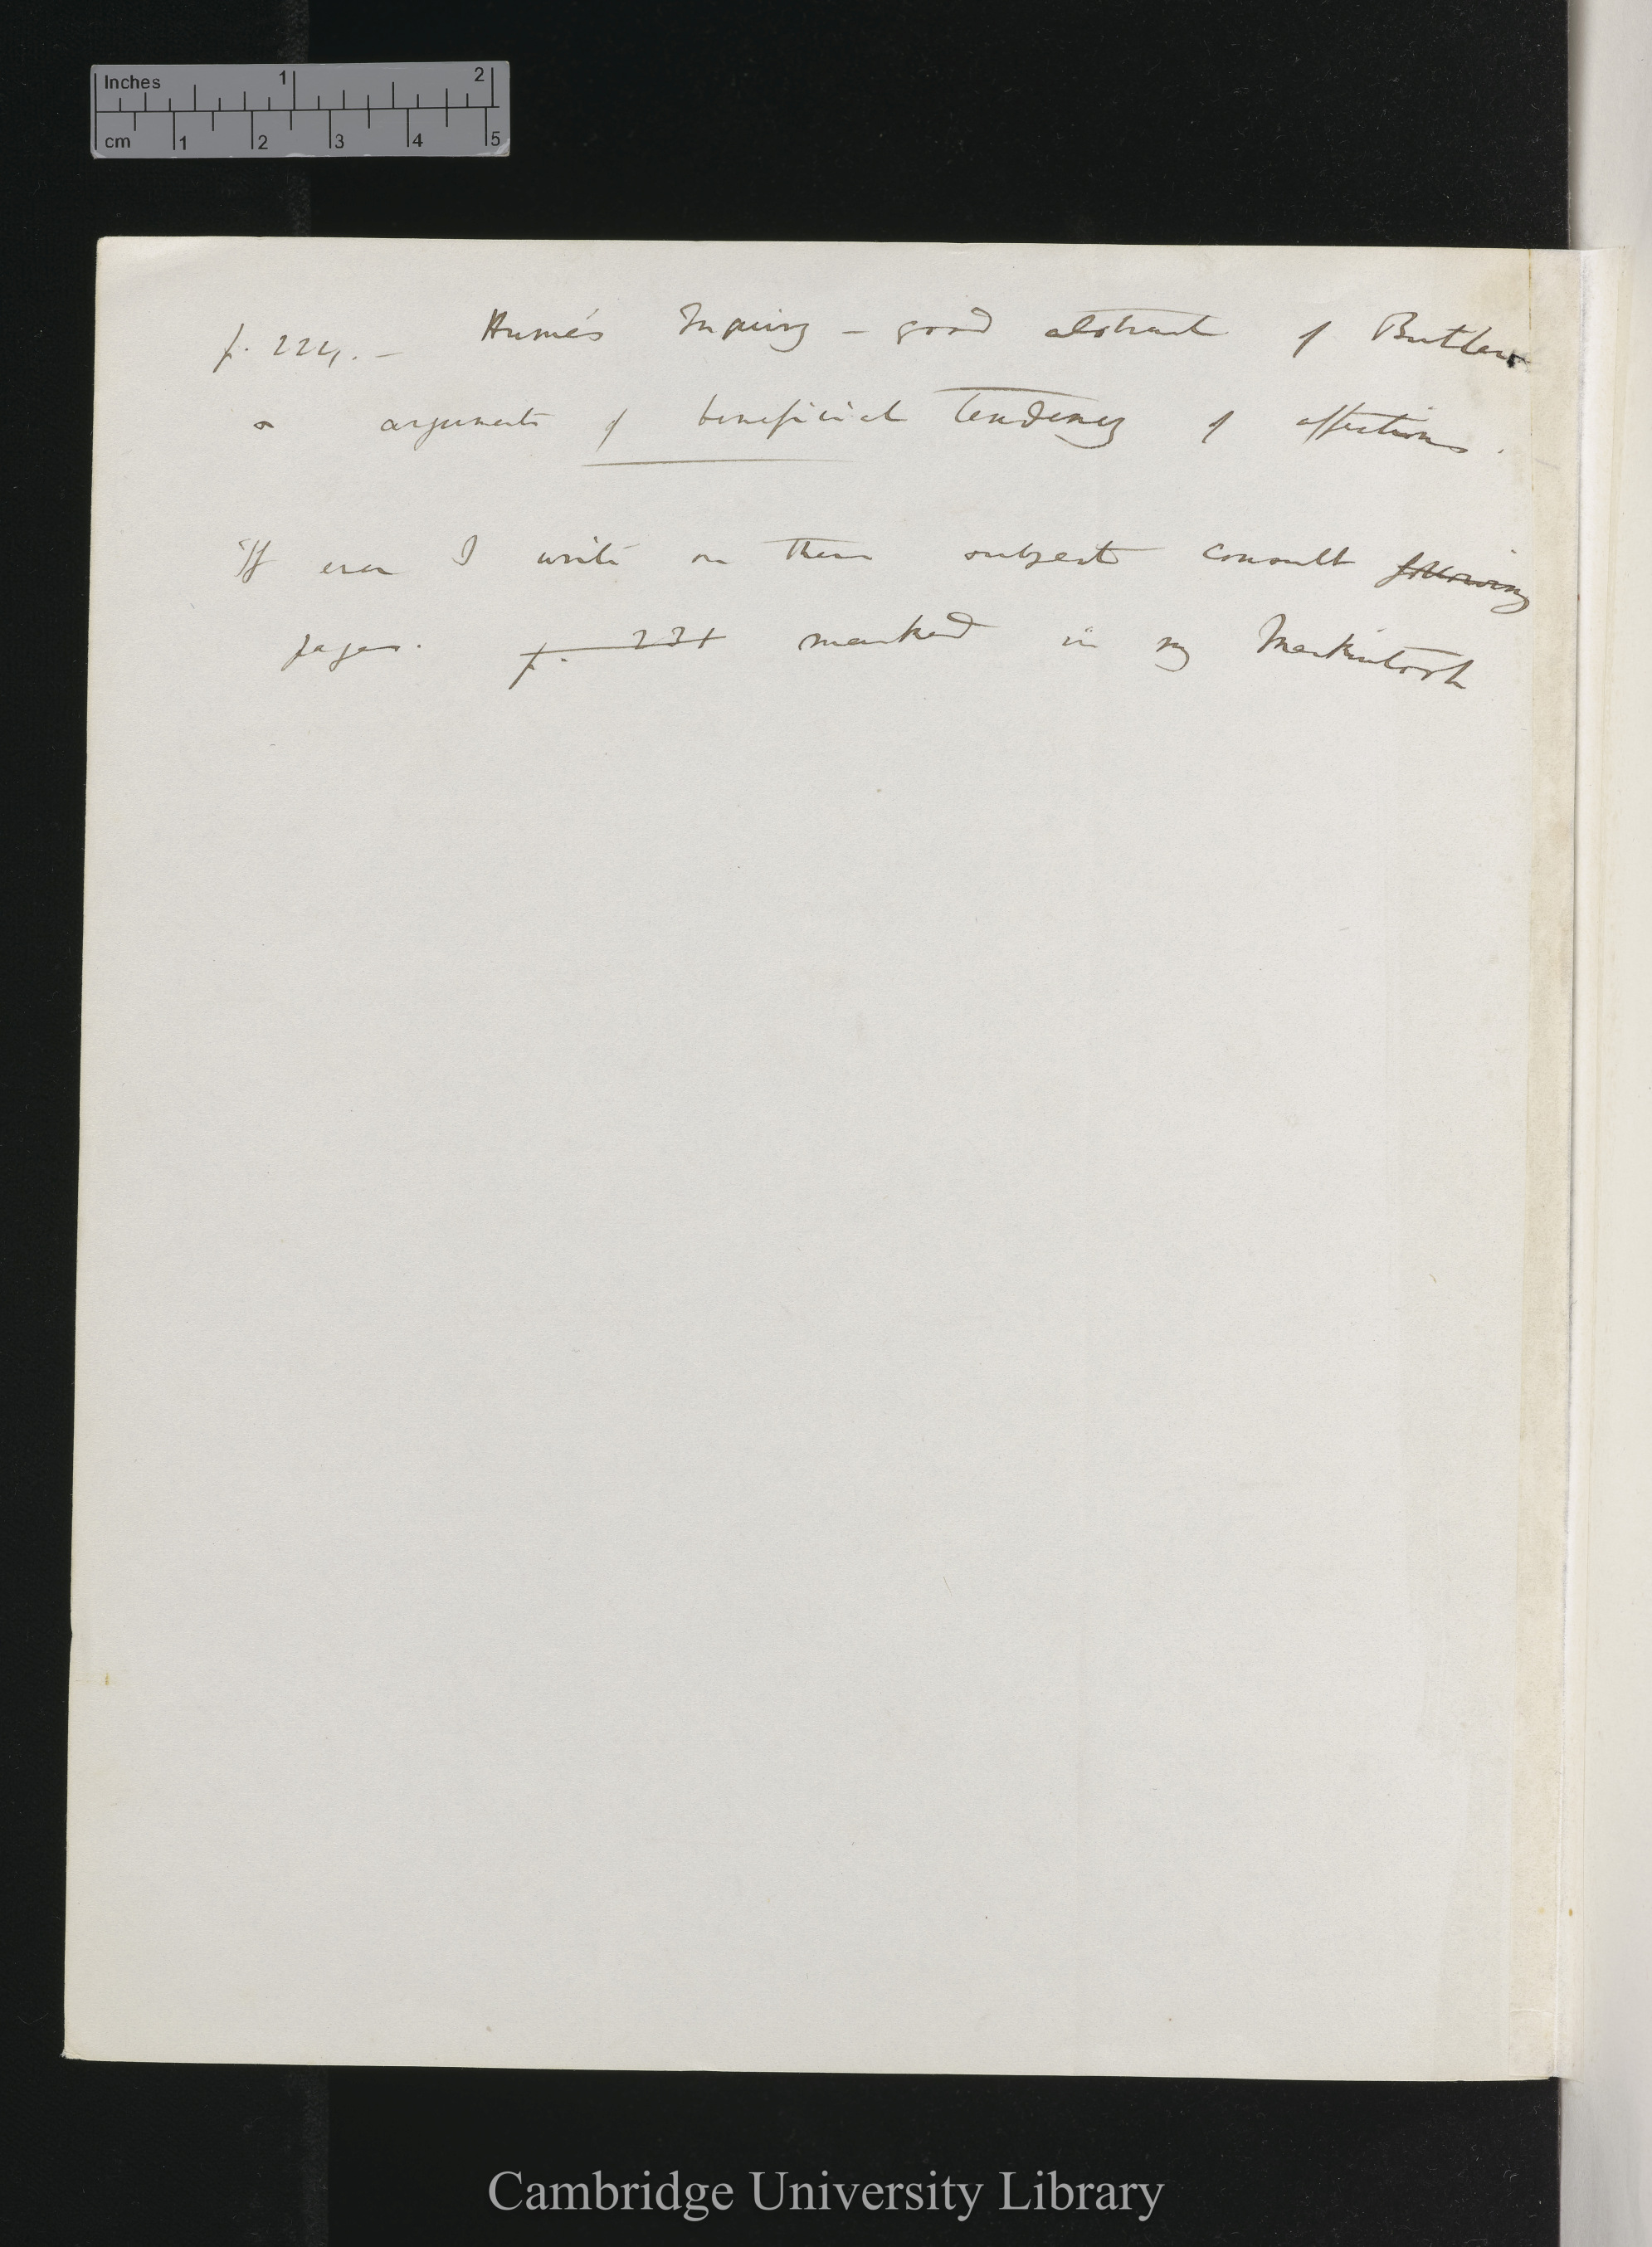 Inches 1 2
cm 1 2 3 4 5
p. 224. – Hume's Inquiry – good abstract of Butler
& arguments of beneficial tendency of affections.
If ever I write on these subject consult following
pages. p. 231 marked in my Mackintosh
Cambridge University Library